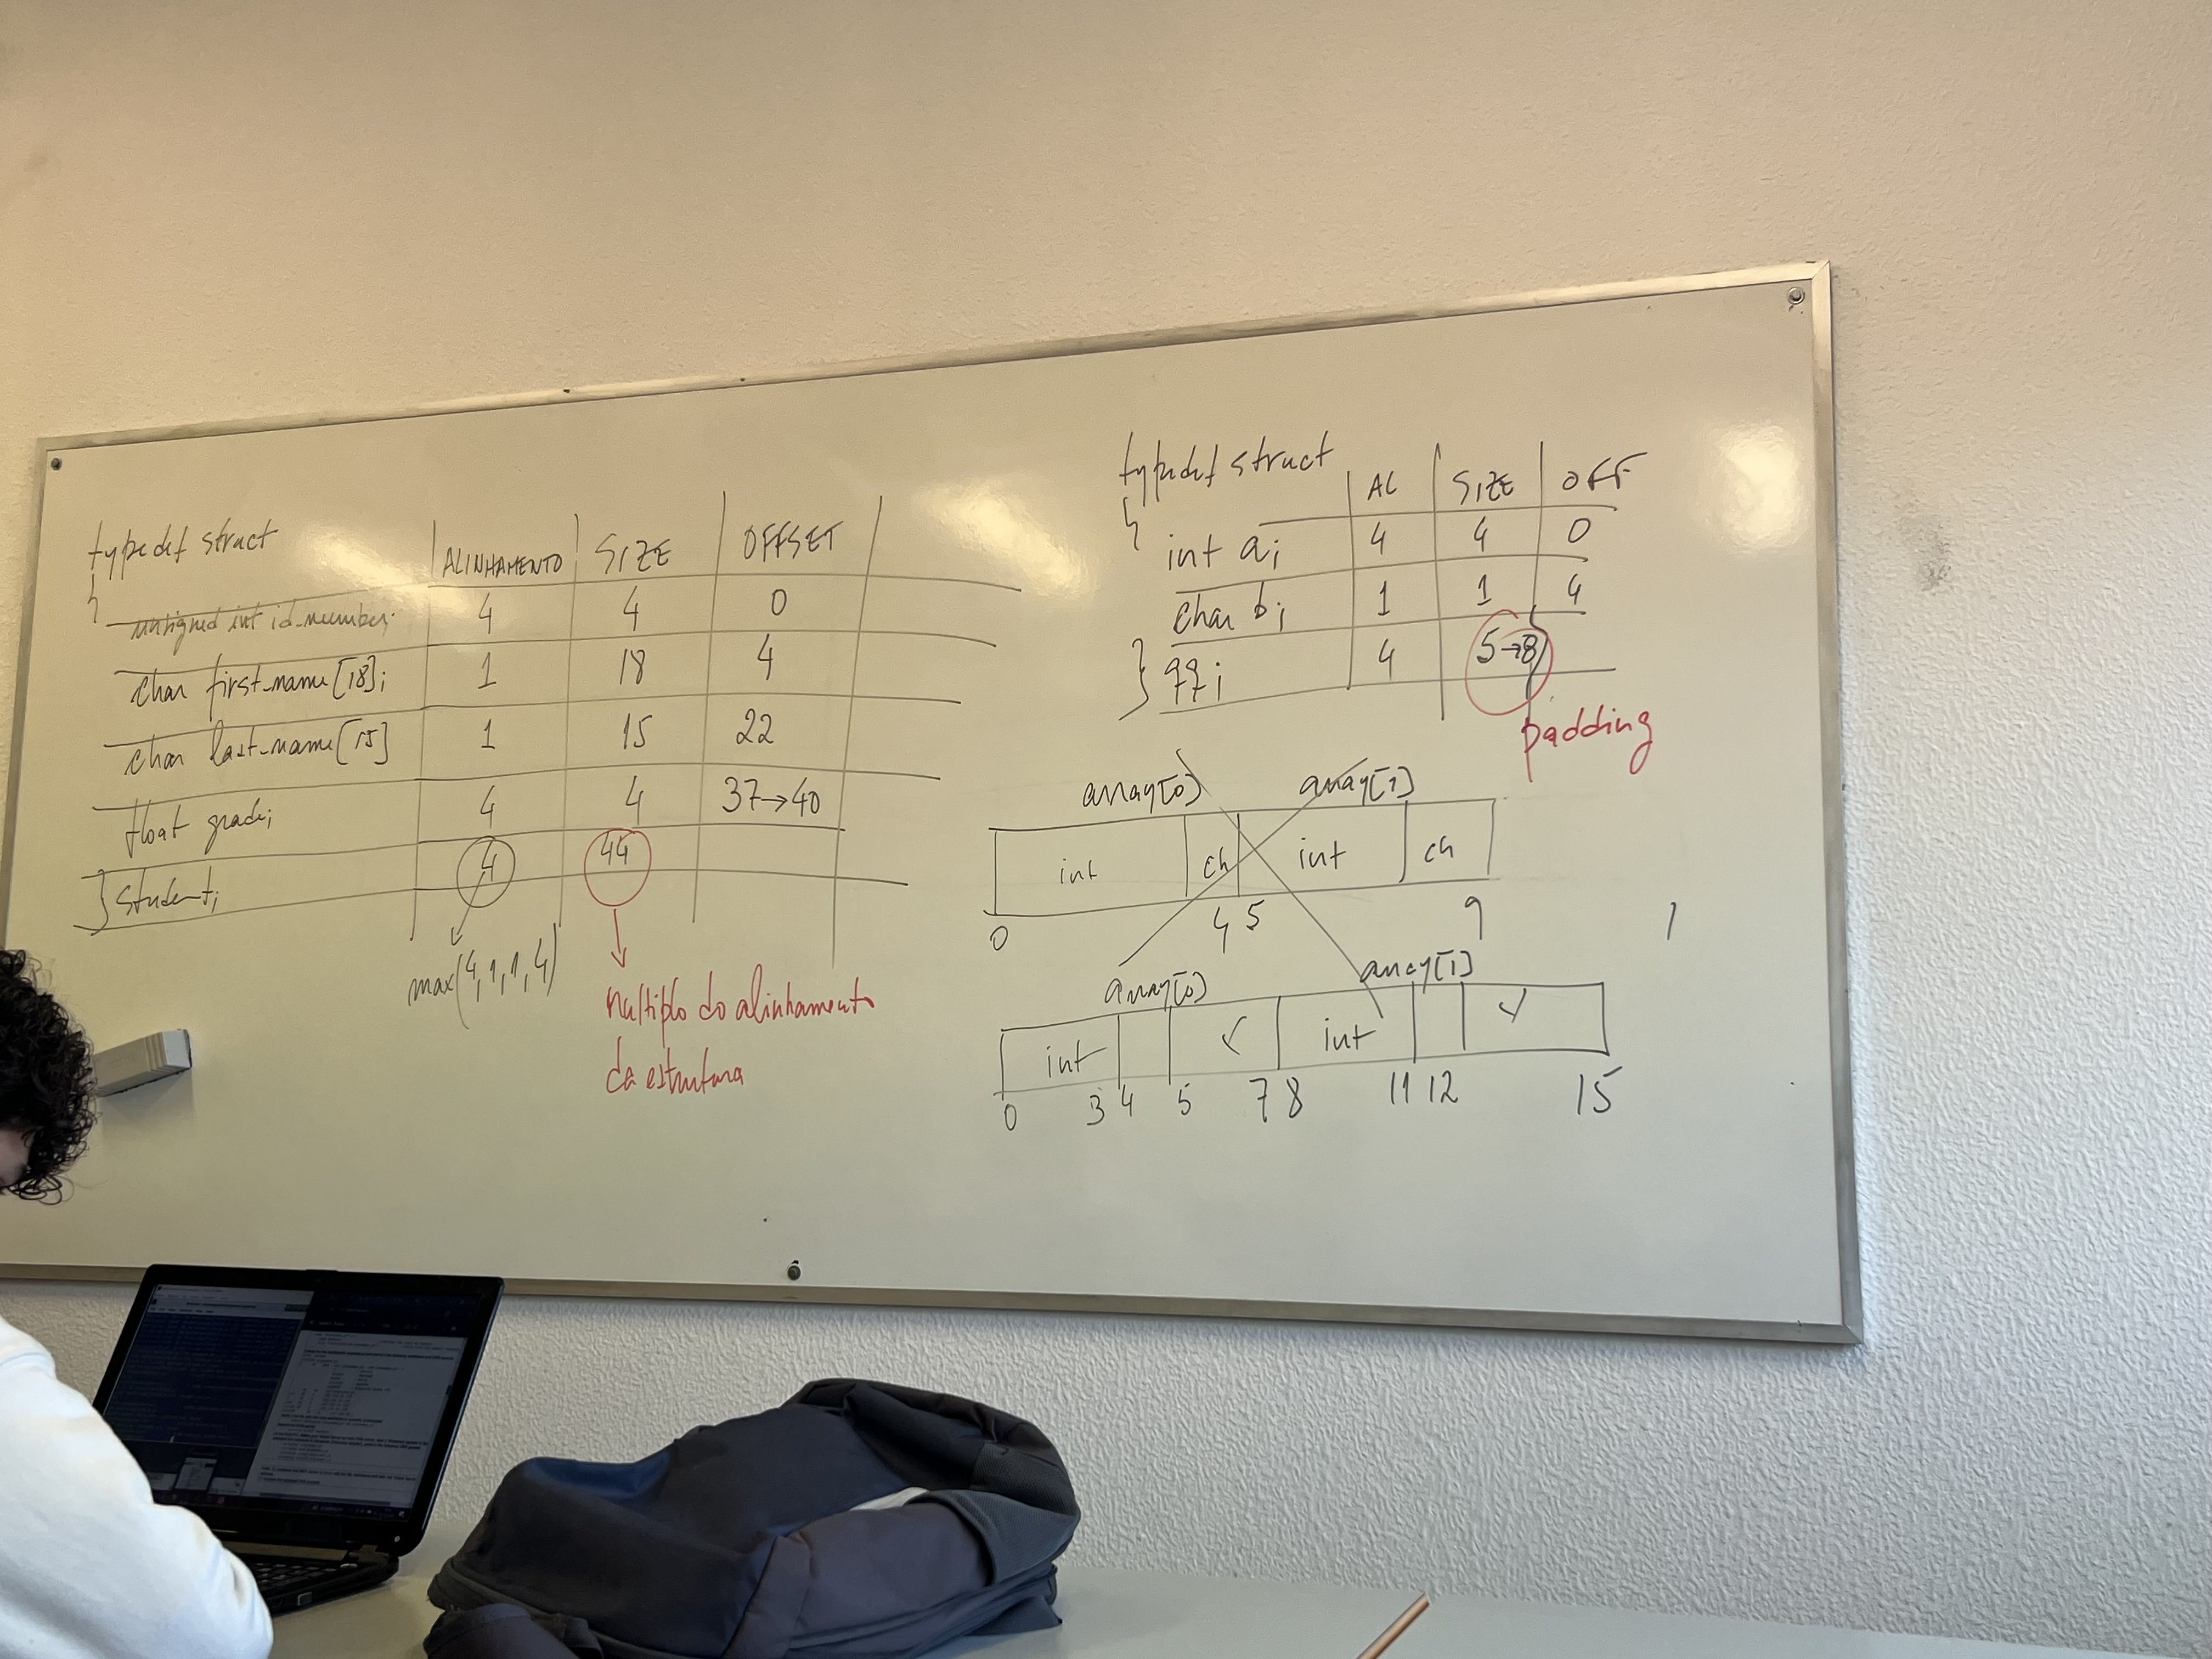 typedef struct
{
ALINHAMENTO SIZE OFFSET
unsigned int id_number; 4 4 0
char first_name[18]; 1 18 4
char last_name[15] 1 15 22
float grade; 4 4 37→40
} student; 4 44
max(4,1,1,4)
multiplo do alinhamento
da estrutura
typedef struct
{
AL SIZE OFF
int a; 4 4 0
char b; 1 1 4
} qq; 4 5→8
padding
array[0] array[1]
int ch int ch
0 4 5 9
1
array[0] array[1]
int ✓ int ✓
0 3 4 5 7 8 11 12 15